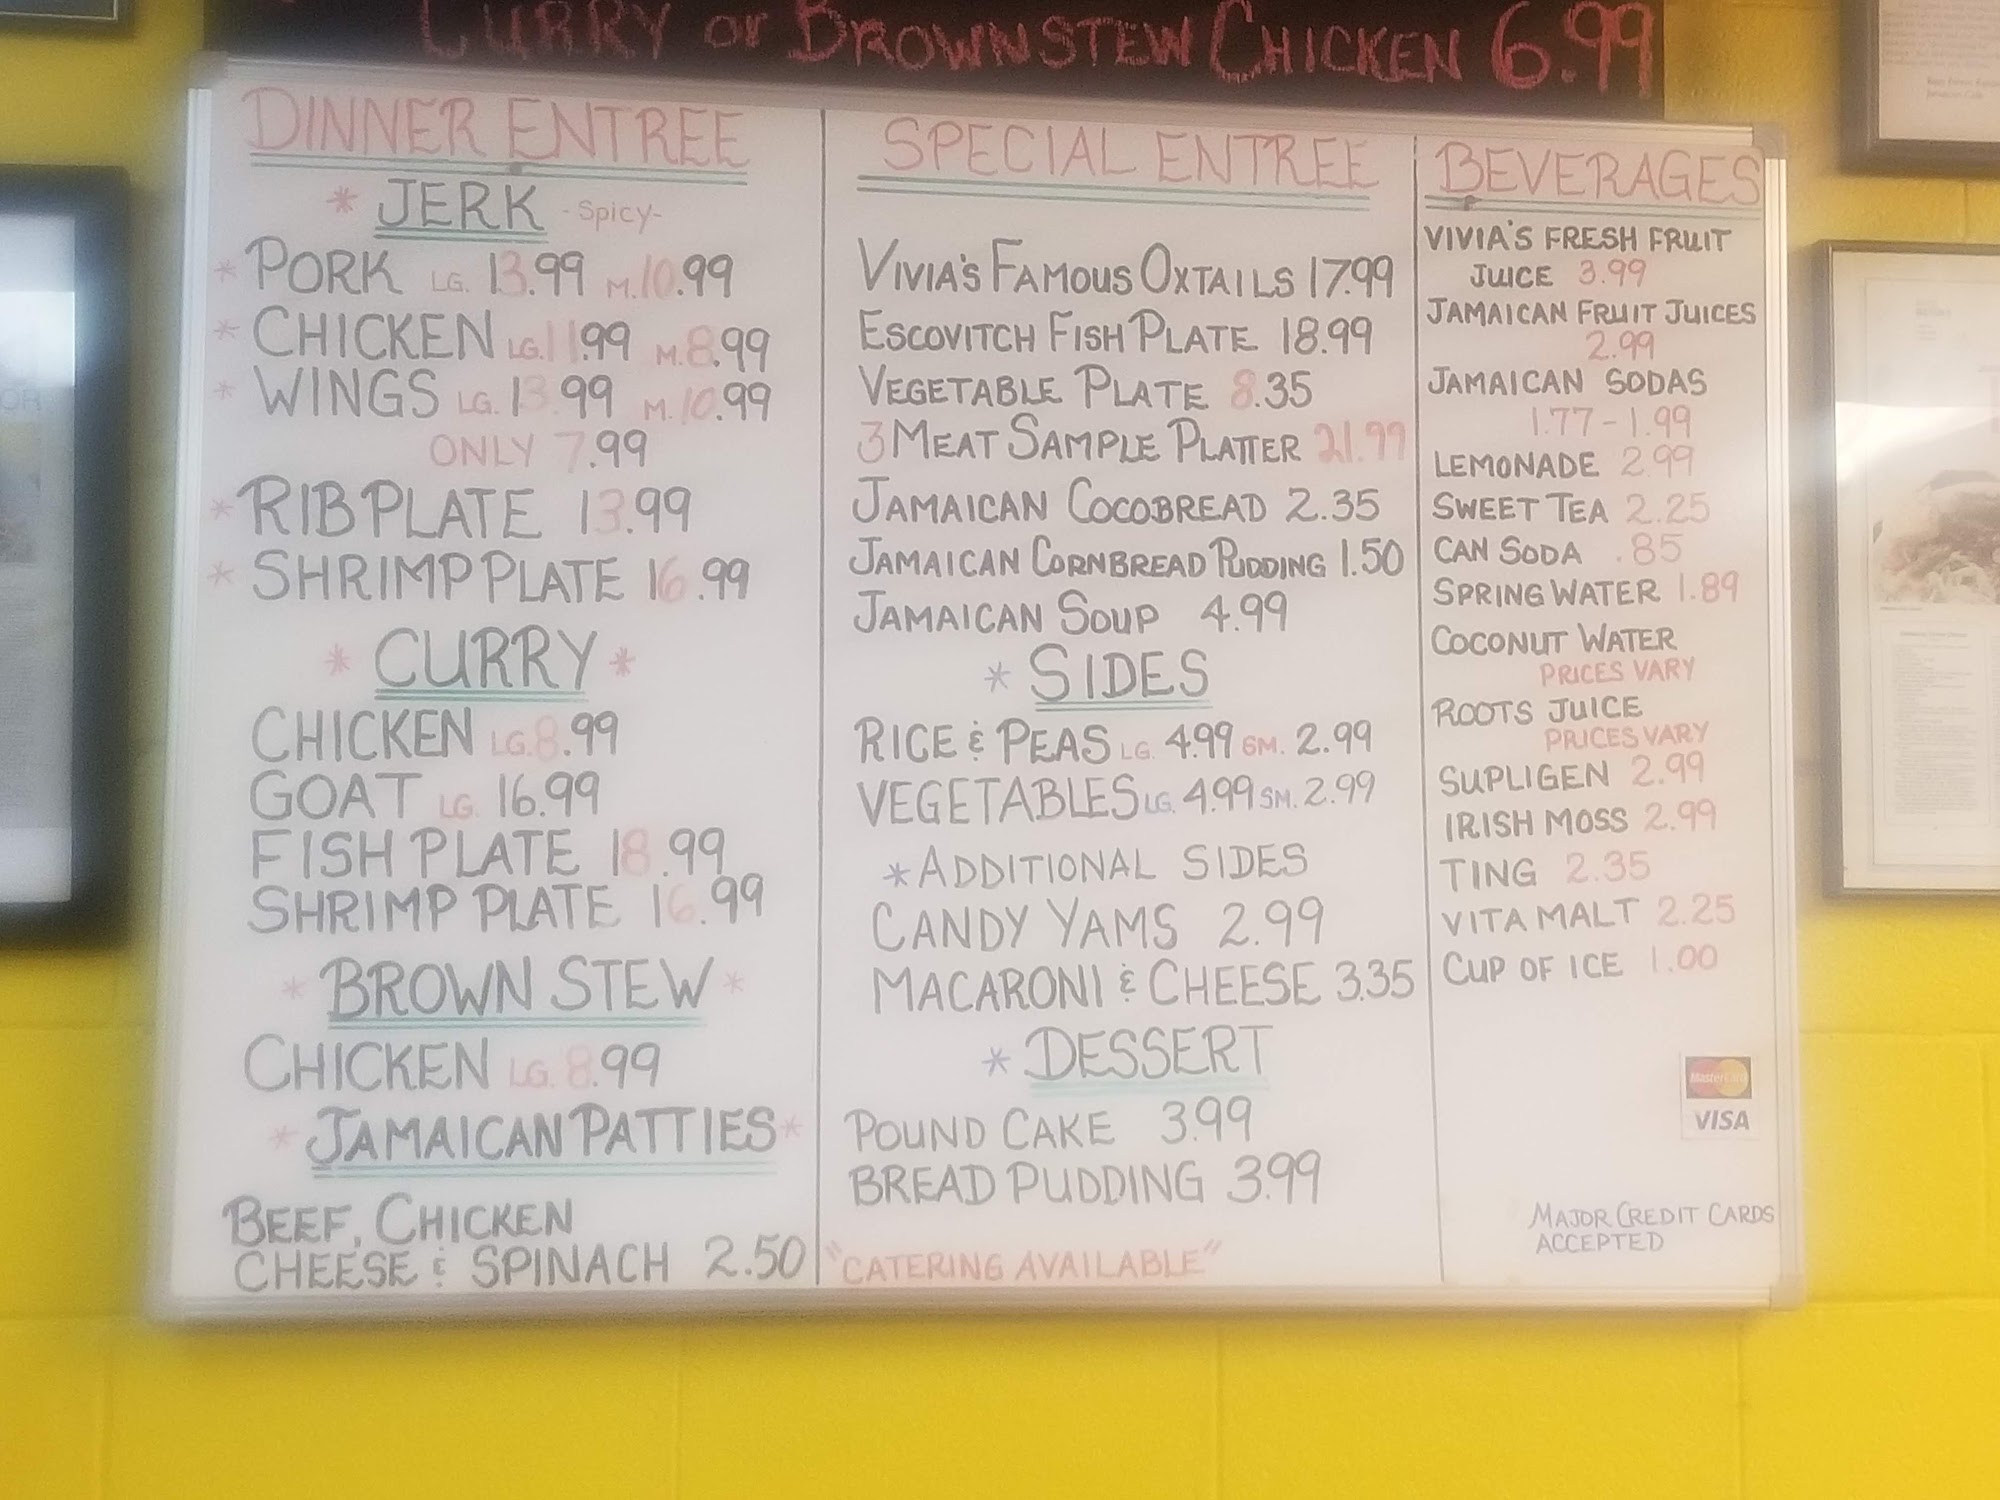 CURRY OR BROWNSTEW CHICKEN 6.99
DINNER ENTREE
* JERK -Spicy-
* PORK LG. 13.99 M. 10.99
* CHICKEN LG. 11.99 M. 8.99
* WINGS LG. 13.99 M. 10.99
ONLY 7.99
* RIB PLATE 13.99
* SHRIMP PLATE 16.99
* CURRY *
CHICKEN LG. 8.99
GOAT LG. 16.99
FISH PLATE 18.99
SHRIMP PLATE 16.99
* BROWN STEW *
CHICKEN LG. 8.99
* JAMAICAN PATTIES *
BEEF, CHICKEN
CHEESE & SPINACH 2.50
SPECIAL ENTREE
VIVIA'S FAMOUS OXTAILS 17.99
ESCOVITCH FISH PLATE 18.99
VEGETABLE PLATE 8.35
3 MEAT SAMPLE PLATTER 21.99
JAMAICAN COCOBREAD 2.35
JAMAICAN CORNBREAD PUDDING 1.50
JAMAICAN SOUP 4.99
* SIDES
RICE & PEAS LG. 4.99 SM. 2.99
VEGETABLES LG. 4.99 SM. 2.99
* ADDITIONAL SIDES
CANDY YAMS 2.99
MACARONI & CHEESE 3.35
* DESSERT
POUND CAKE 3.99
BREAD PUDDING 3.99
"CATERING AVAILABLE"
BEVERAGES
VIVIA'S FRESH FRUIT
JUICE 3.99
JAMAICAN FRUIT JUICES
2.99
JAMAICAN SODAS
1.77 - 1.99
LEMONADE 2.99
SWEET TEA 2.25
CAN SODA .85
SPRING WATER 1.89
COCONUT WATER
PRICES VARY
ROOTS JUICE
PRICES VARY
SUPLIGEN 2.99
IRISH MOSS 2.99
TING 2.35
VITA MALT 2.25
CUP OF ICE 1.00
MasterCard
VISA
MAJOR CREDIT CARDS
ACCEPTED